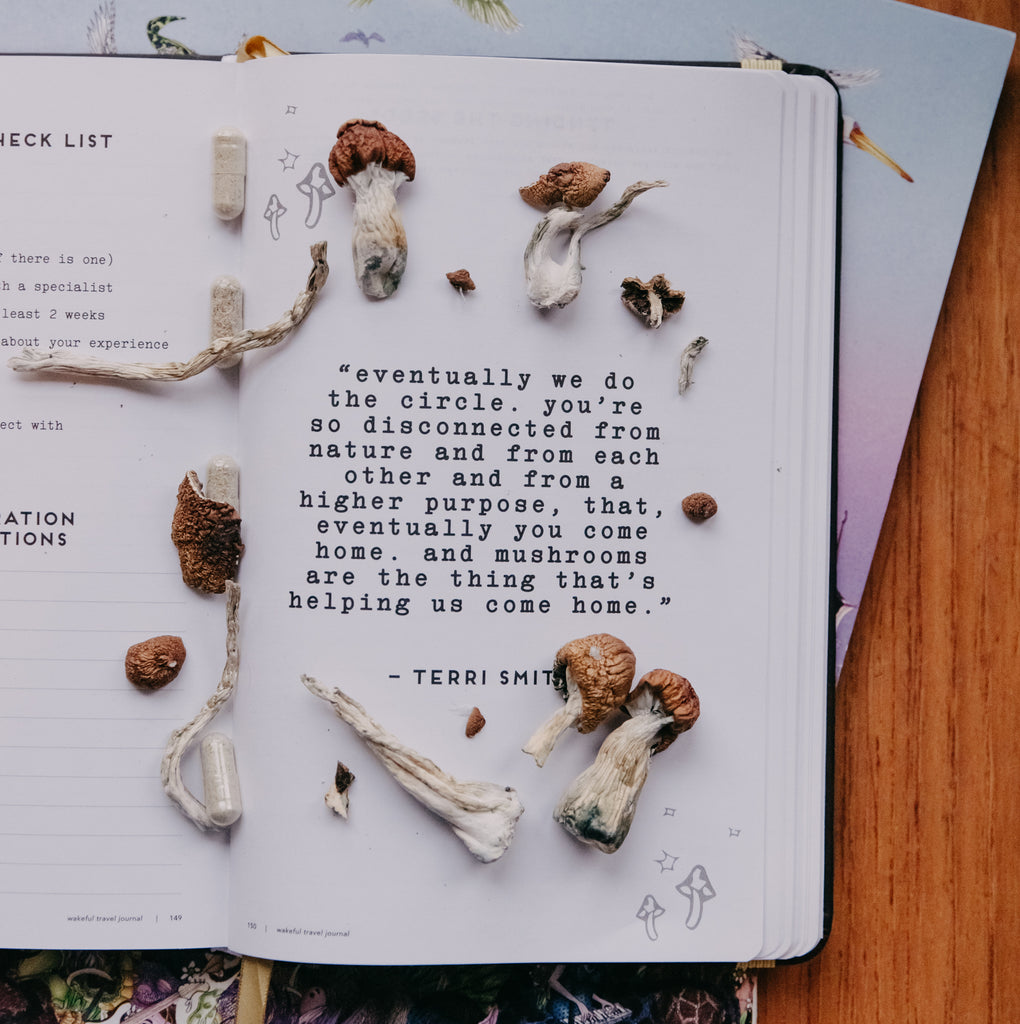 HECK LIST
there is one)
h a specialist
least 2 weeks
about your experience
ect with
RATION
TIONS
wakeful travel journal | 149
“eventually we do
the circle. you’re
so disconnected from
nature and from each
other and from a
higher purpose, that,
eventually you come
home. and mushrooms
are the thing that’s
helping us come home.”
– TERRI SMIT
150 | wakeful travel journal